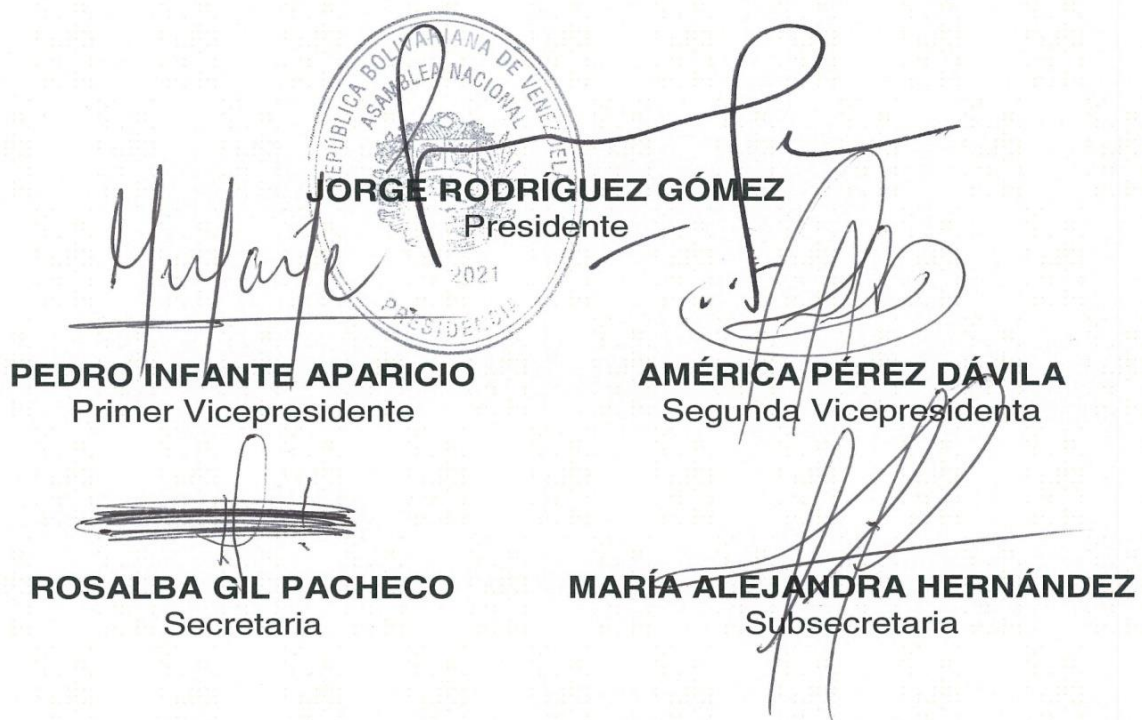 REPÚBLICA BOLIVARIANA DE VENEZUELA
ASAMBLEA NACIONAL
JORGE RODRÍGUEZ GÓMEZ
Presidente
2021
PRESIDENCIA
Infante
PEDRO INFANTE APARICIO
Primer Vicepresidente
AMÉRICA PÉREZ DÁVILA
Segunda Vicepresidenta
ROSALBA GIL PACHECO
Secretaria
MARÍA ALEJANDRA HERNÁNDEZ
Subsecretaria